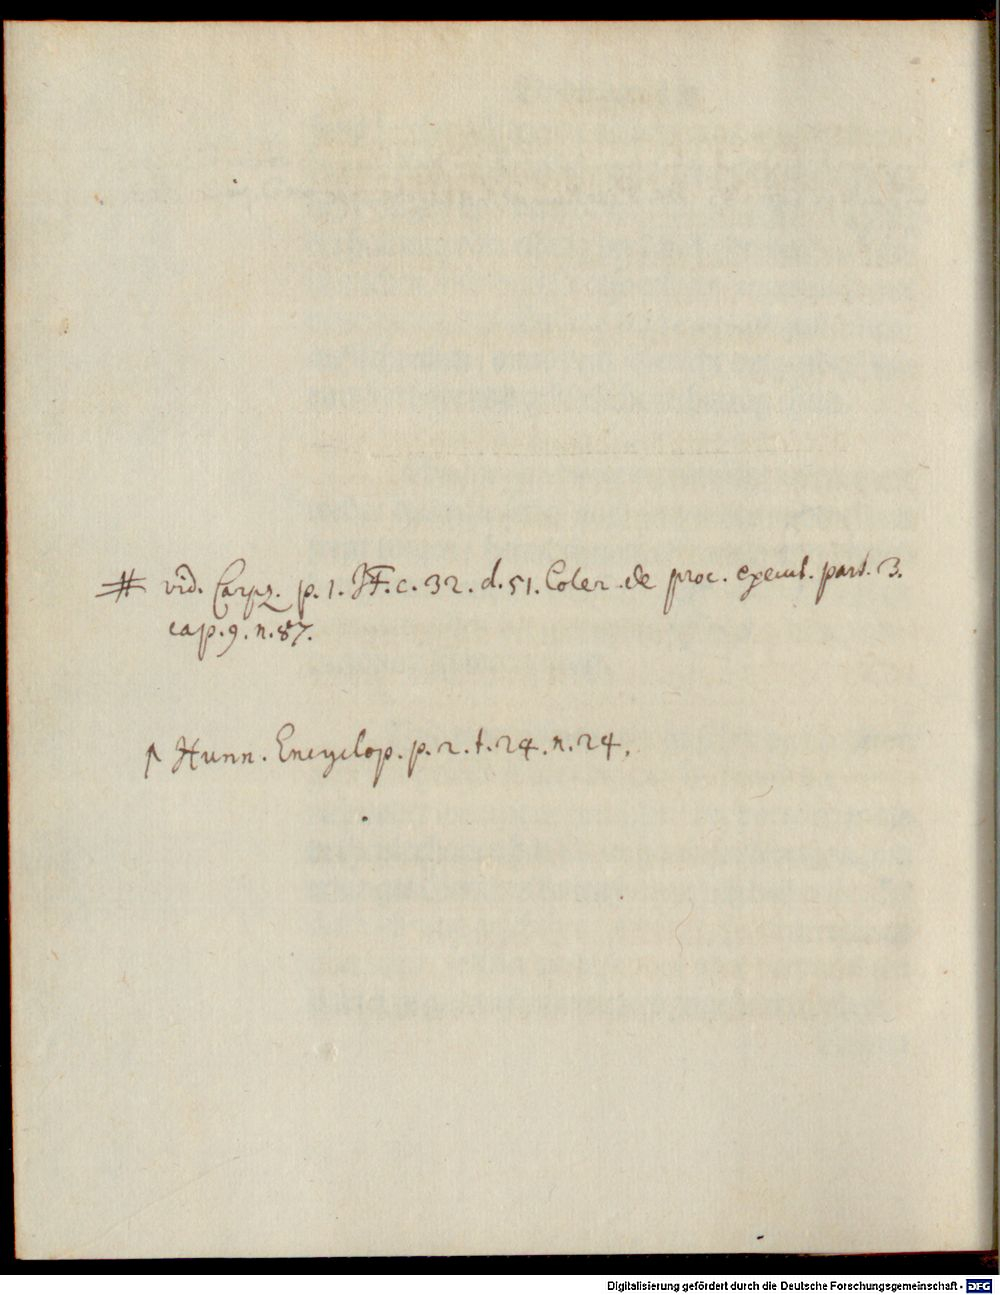 # vid. Carpz. p. 1. JF. c. 32. d. 51. Coler. de proc. execut. part. 3.
cap. 9. n. 87.
Hunn. Encyclop. p. 2. t. 24. n. 24.
Digitalisierung gefördert durch die Deutsche Forschungsgemeinschaft - DFG